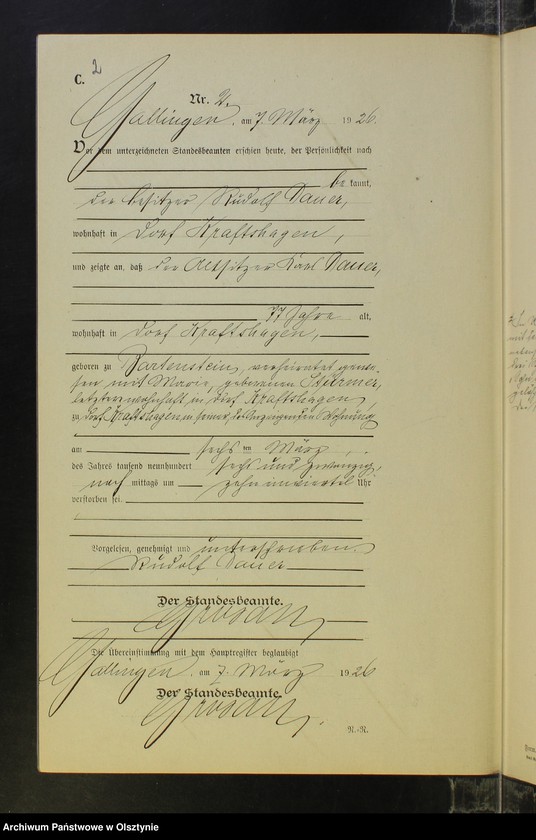 C. 2
Nr. 2.
Gallingen, am 7. März 1926.
Vor dem unterzeichneten Standesbeamten erschien heute, der Persönlichkeit nach
bekannt,
der Besitzer Rudolf Dauer,
wohnhaft in Dorf Kraftshagen,
und zeigte an, daß der Altsitzer Karl Dauer,
77 Jahre alt,
wohnhaft in Dorf Kraftshagen,
geboren zu Bartenstein, verheiratet gewe-
sen mit Marie, geborenen Stürmer,
letzter wohnhaft in Dorf Kraftshagen,
zu Dorf Kraftshagen in seiner Wohnung
am sechsten März
des Jahres tausend neunhundert sechs und zwanzig,
nachmittags um zehn Uhr
verstorben sei.
Vorgelesen, genehmigt und unterschrieben
Rudolf Dauer
Der Standesbeamte.
Die Übereinstimmung mit dem Hauptregister beglaubigt
Gallingen, am 7. März 1926
Der Standesbeamte.
N.-R.
Archiwum Państwowe w Olsztynie